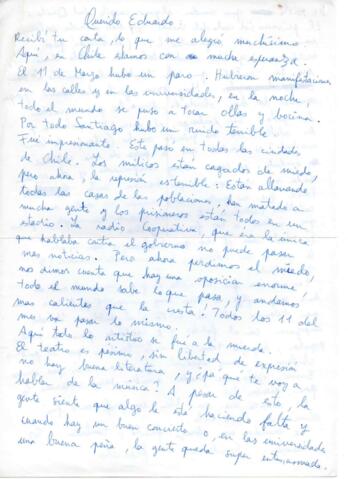 Querido Eduardo:
Recibí tu carta, lo que me alegró muchísimo
Aquí, en Chile estamos con mucha esperanza.
El 11 de Marzo hubo un paro. Hubieron manifestaciones
en las calles y en las universidades, en la noche,
todo el mundo se puso a tocar ollas y bocina.
Por todo Santiago hubo un ruido terrible.
Fué impresionante. Esto pasó en todas las ciudades
de Chile. Los milicos están cagados de miedo,
pero ahora, la represión es terrible: Están allanando
todas las casas de las poblaciones, han matado a
mucha gente y los prisioneros están todos en un
estadio. La radio Cooperativa, que era la única
que hablaba contra el gobierno no puede pasar
mas noticias. Pero ahora perdimos el miedo,
nos dimos cuenta que hay una oposición enorme
todo el mundo sabe lo que pasa, y andamos
mas calientes que la cresta! Todos los 11 del
mes va pasar lo mismo.
Aquí todo lo artístico se fue a la mierda.
El teatro es pésimo, sin libertad de expresión
no hay buena literatura, y ¿pa' que te voy a
hablar de la música? A pesar de esto la
gente siente que algo le está haciendo falta y
cuando hay un buen concierto o, en las universidades
una buena peña, la gente queda super entusiasmada.